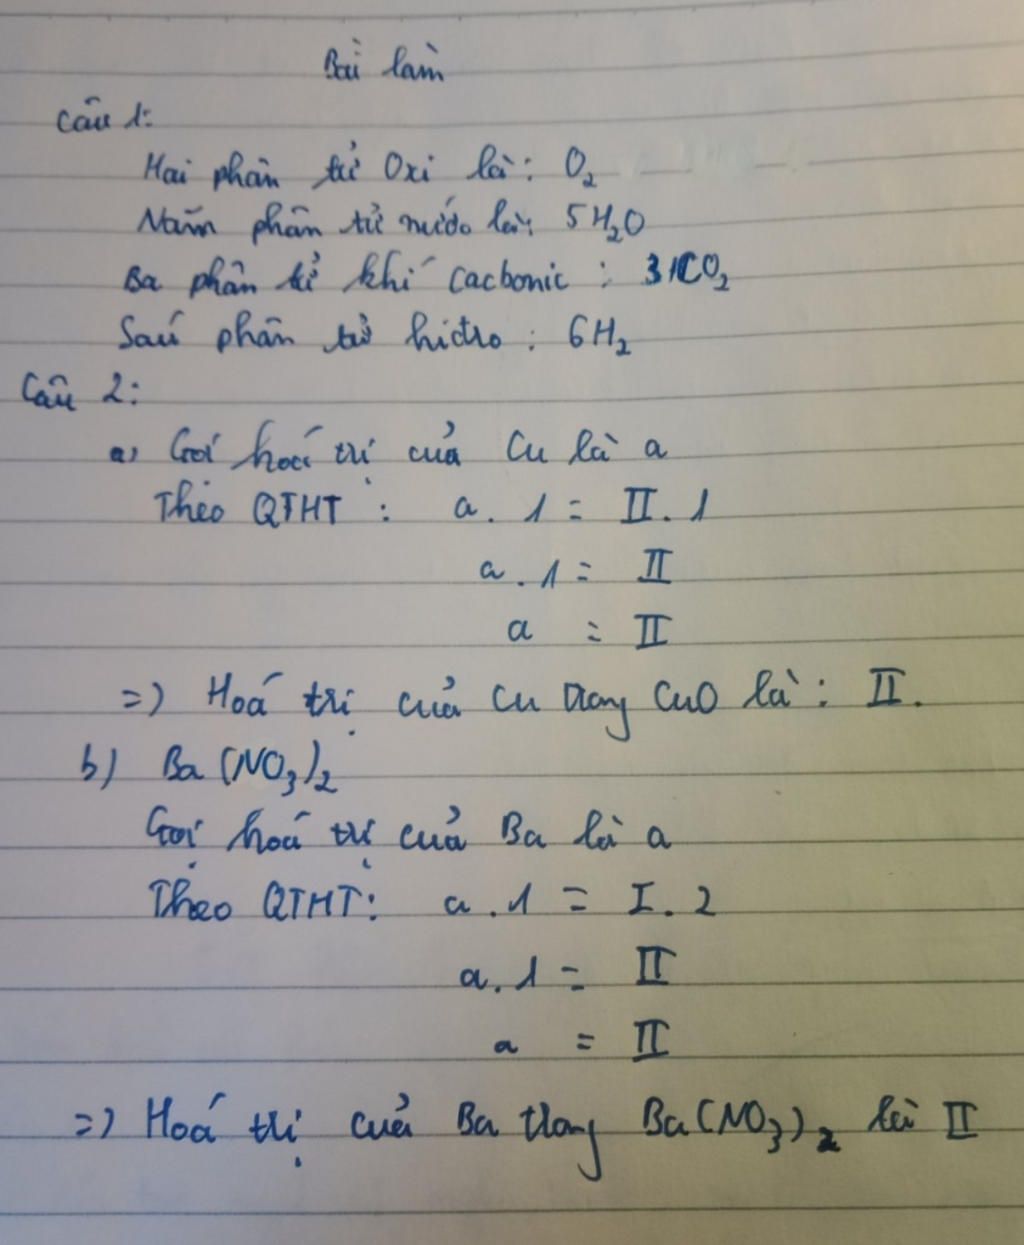 Bài làm
Câu 1:
Hai phân tử Oxi là: O₂
Năm phân tử nước là: 5H₂O
Ba phân tử khí cacbonic : 3CO₂
Sáu phân tử hidro : 6H₂
Câu 2:
a) Gọi hoá trị của Cu là a
Theo QTHT : a . 1 = II . 1
a . 1 = II
a = II
=) Hoá trị của Cu trong CuO là : II.
b) Ba(NO₃)₂
Gọi hoá trị của Ba là a
Theo QTHT : a . 1 = I . 2
a . 1 = II
a = II
=) Hoá trị của Ba trong Ba(NO₃)₂ là II